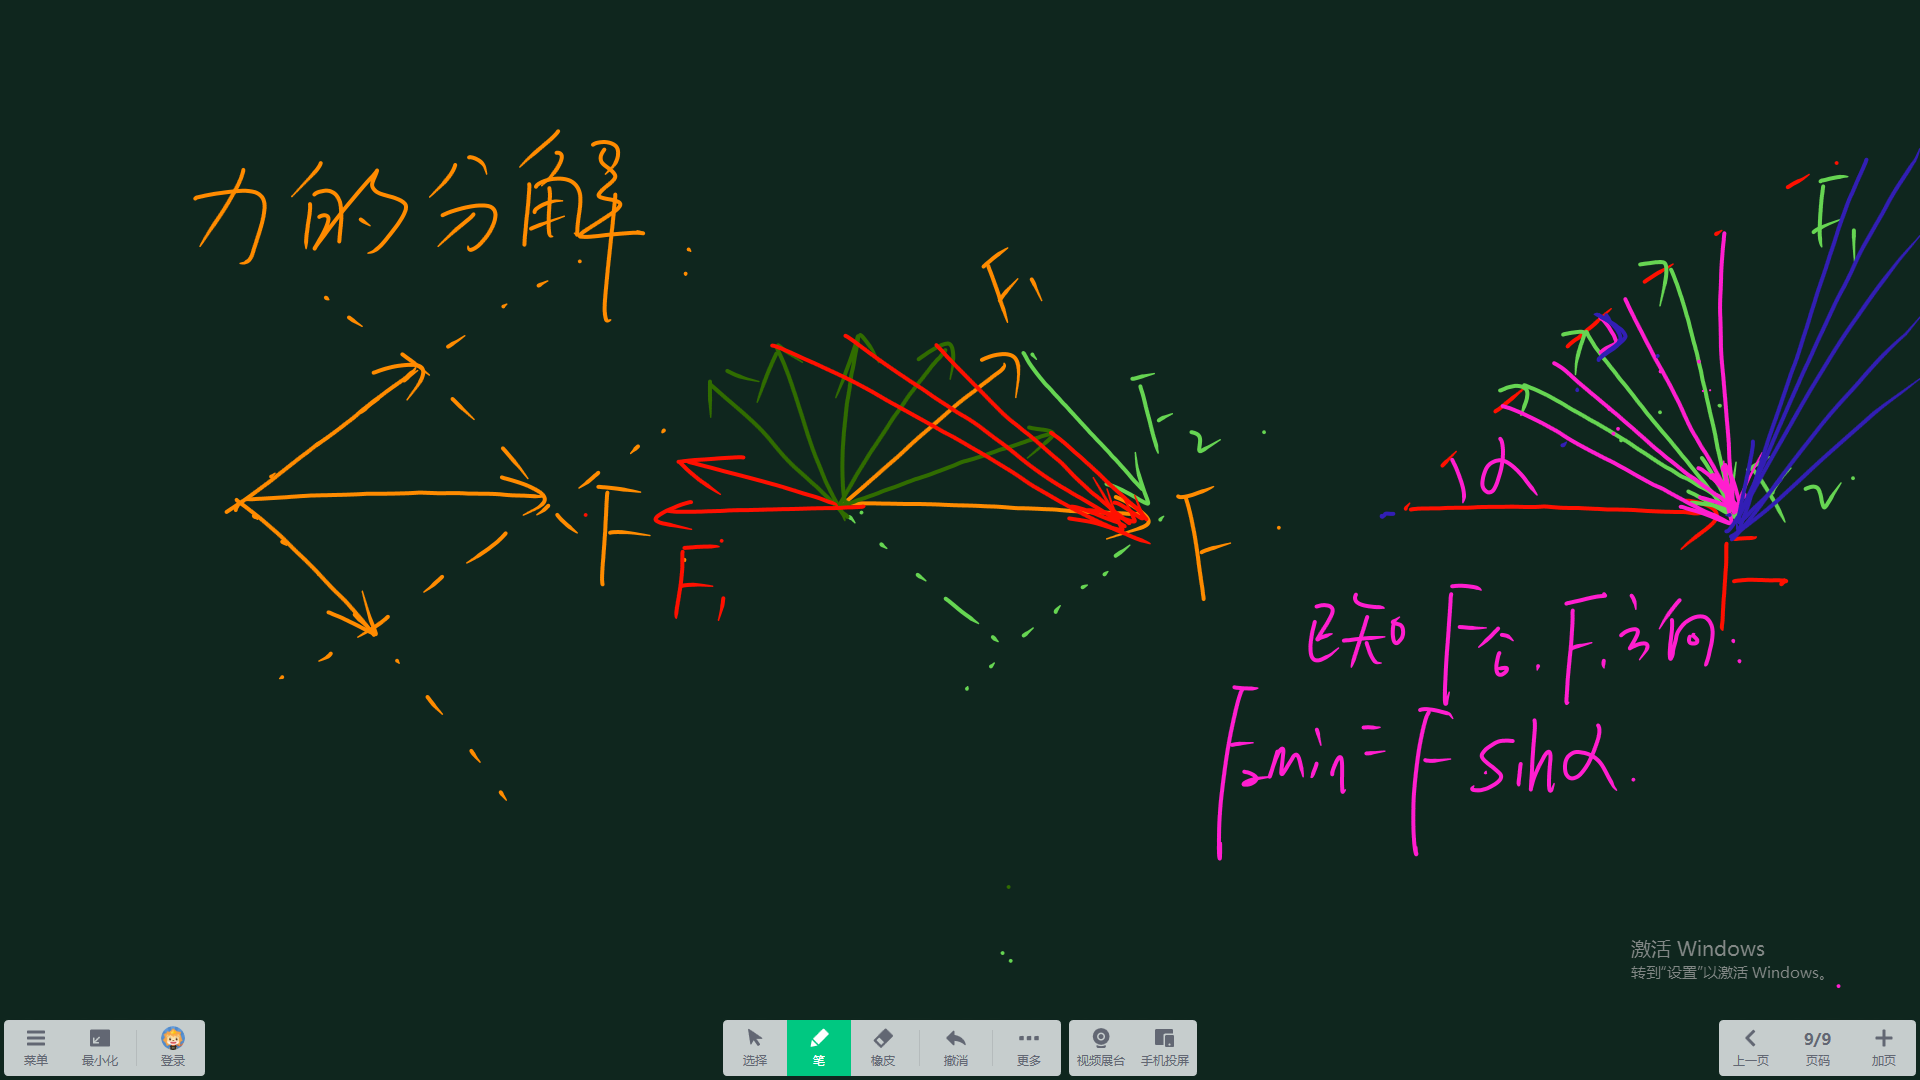 力的分解
F₁
F₁
F₂
F
F
F₁
α
F₂
F
已知F合.F₁方向:
F₂min=Fsinα.
激活 Windows
转到“设置”以激活 Windows。
菜单 最小化 登录 选择 笔 橡皮 撤消 更多 视频展台 手机投屏 上一页 9/9 页码 加页